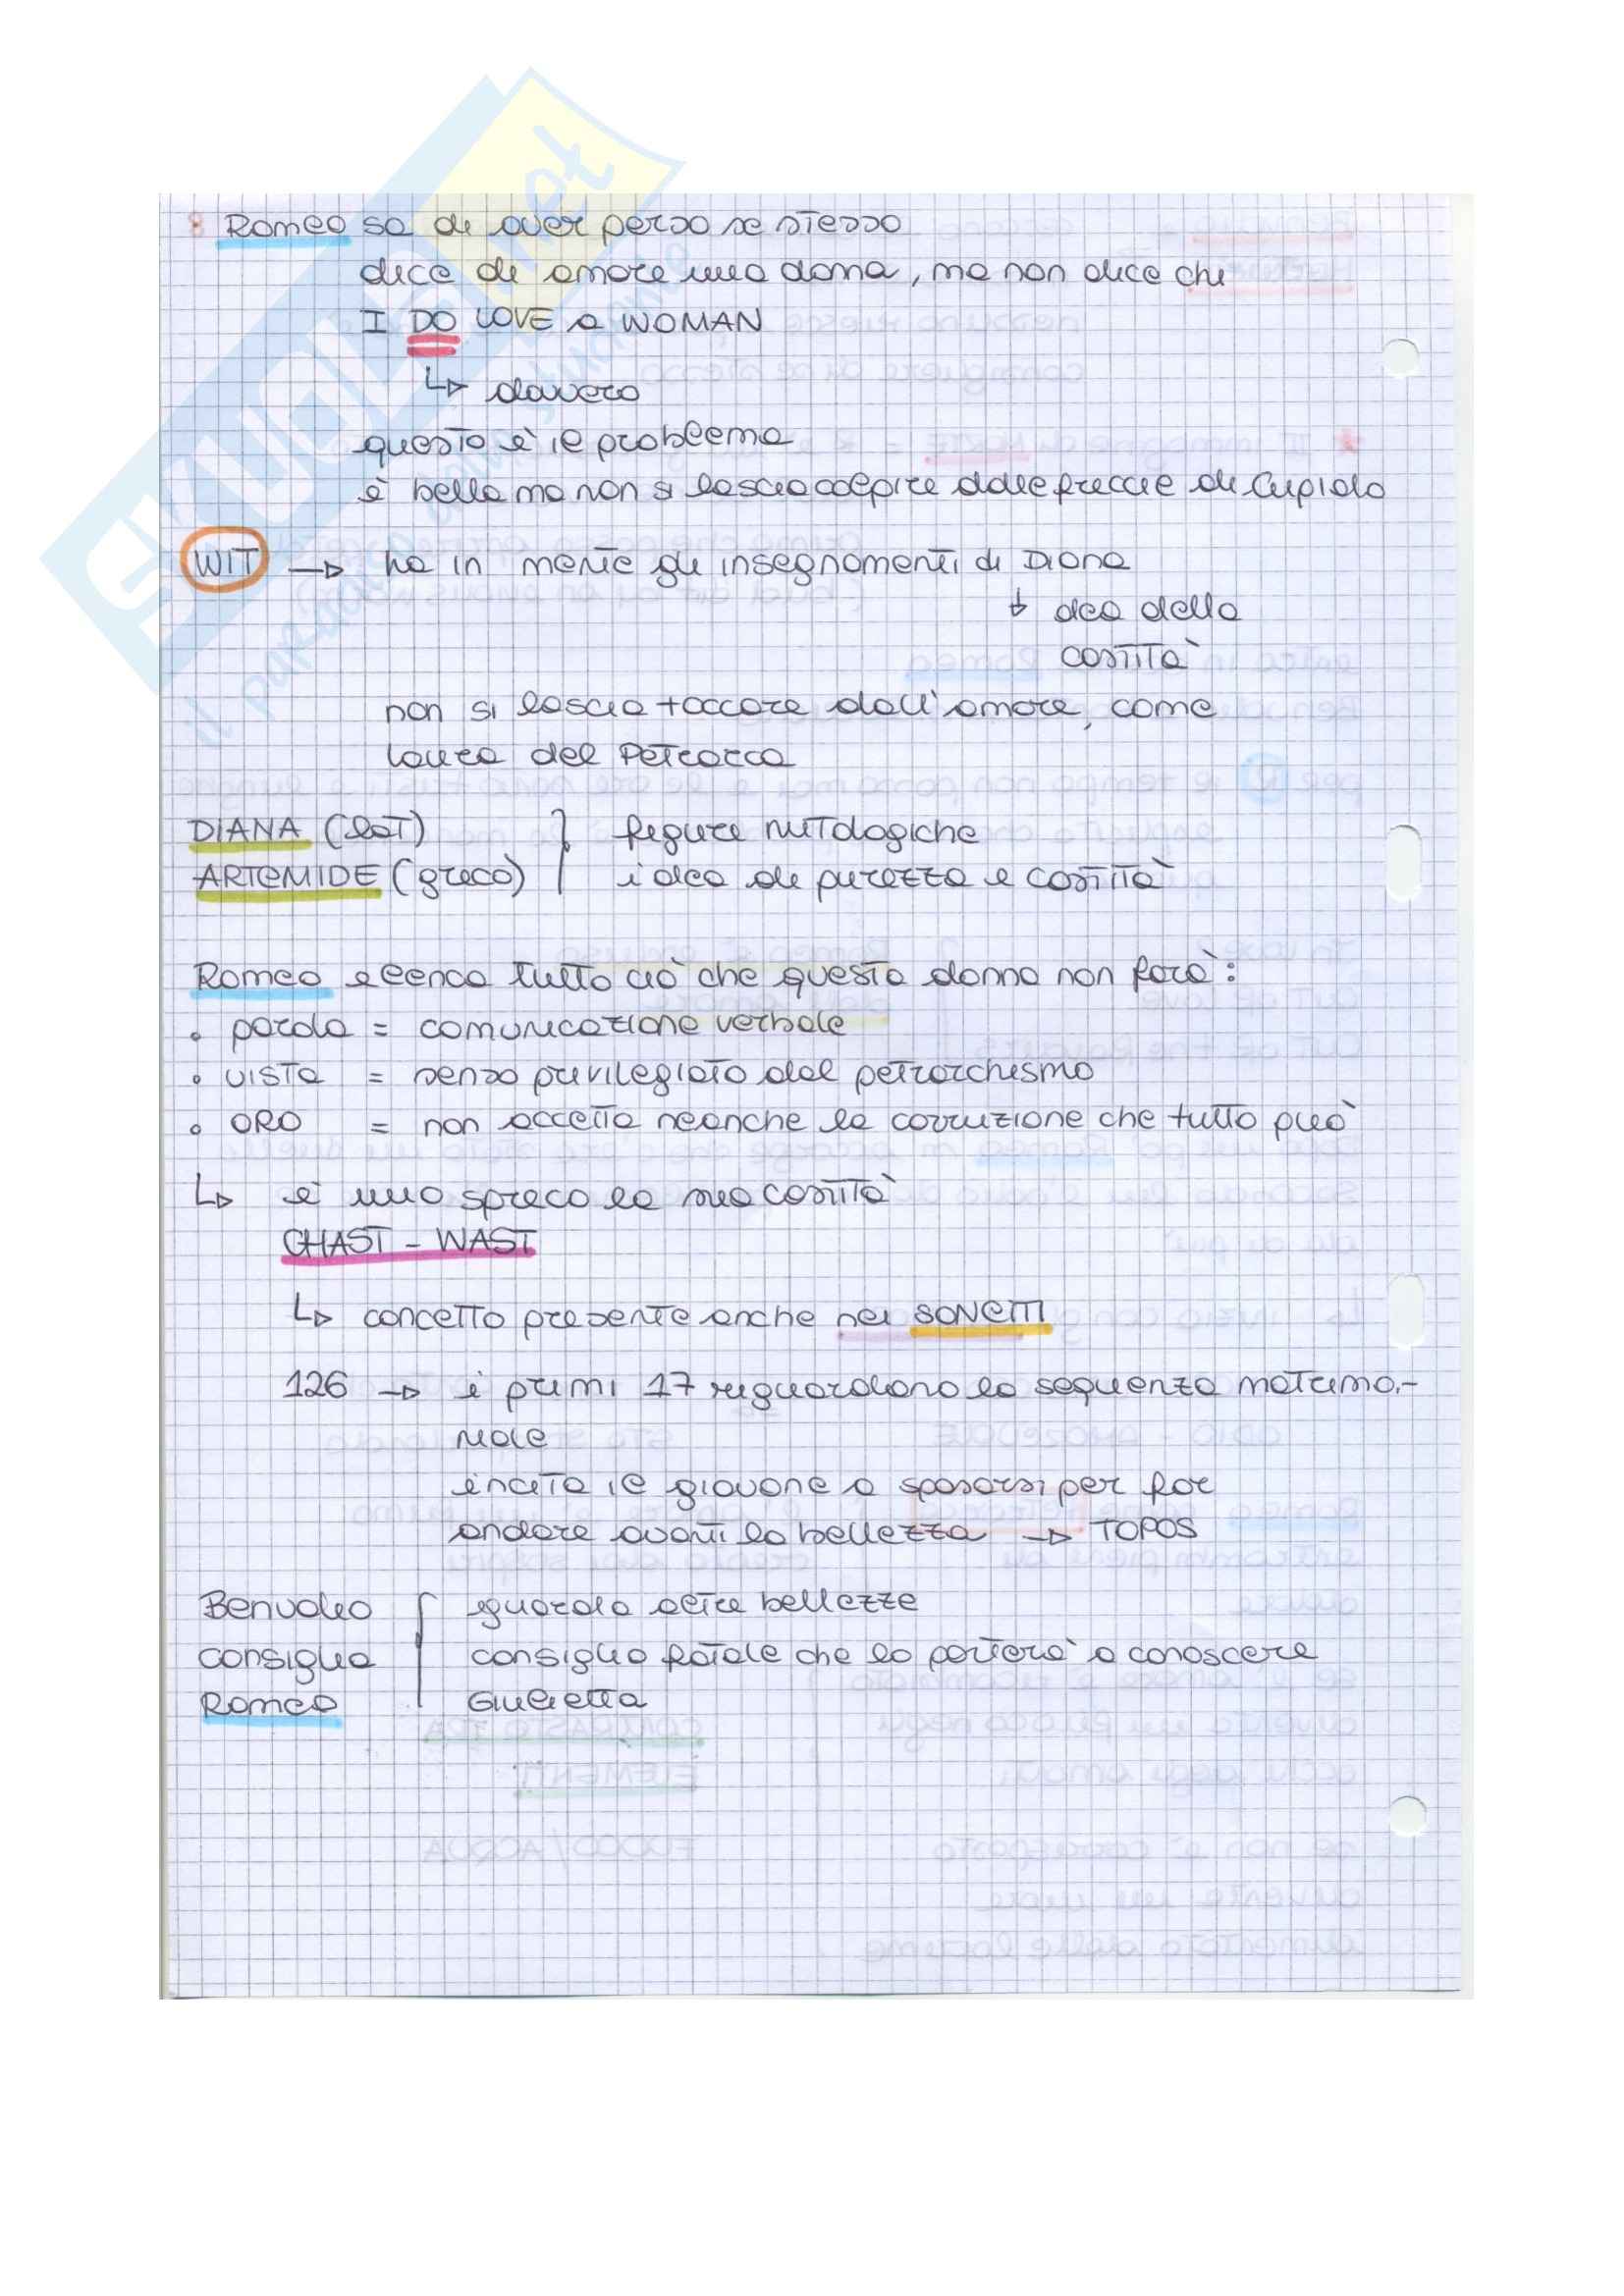 8 Romeo sa di aver perso se stesso
dice di amare una donna, ma non dice chi
I DO LOVE a WOMAN
↳ davvero
questo è il problema
è bella ma non si lascia colpire dalle freccie di Cupido
WIT → ha in mente gli insegnamenti di Diana
↓ dea della
castità
non si lascia toccare dall'amore, come
Laura del Petrarca
DIANA (lat) } figure mitologiche
ARTEMIDE (greco) idea di purezza e castità
Romeo elenca tutto ciò che questa donna non farà:
• parola = comunicazione verbale
• VISTA = senso privilegiato dal petrarchismo
• ORO = non accetta neanche la corruzione che tutto può
↳ è uno spreco la sua castità
CHAST - WAST
↳ concetto presente anche nei SONETTI
126 → i primi 17 riguardano la sequenza matrimo-
niale
incita il giovane a sposarsi per far
andare avanti la bellezza → TOPOS
Benvolio { guarda altre bellezze
consiglia consiglio fatale che lo porterà a conoscere
Romeo Giulietta
SKUOLA.net
il paradiso dello studente